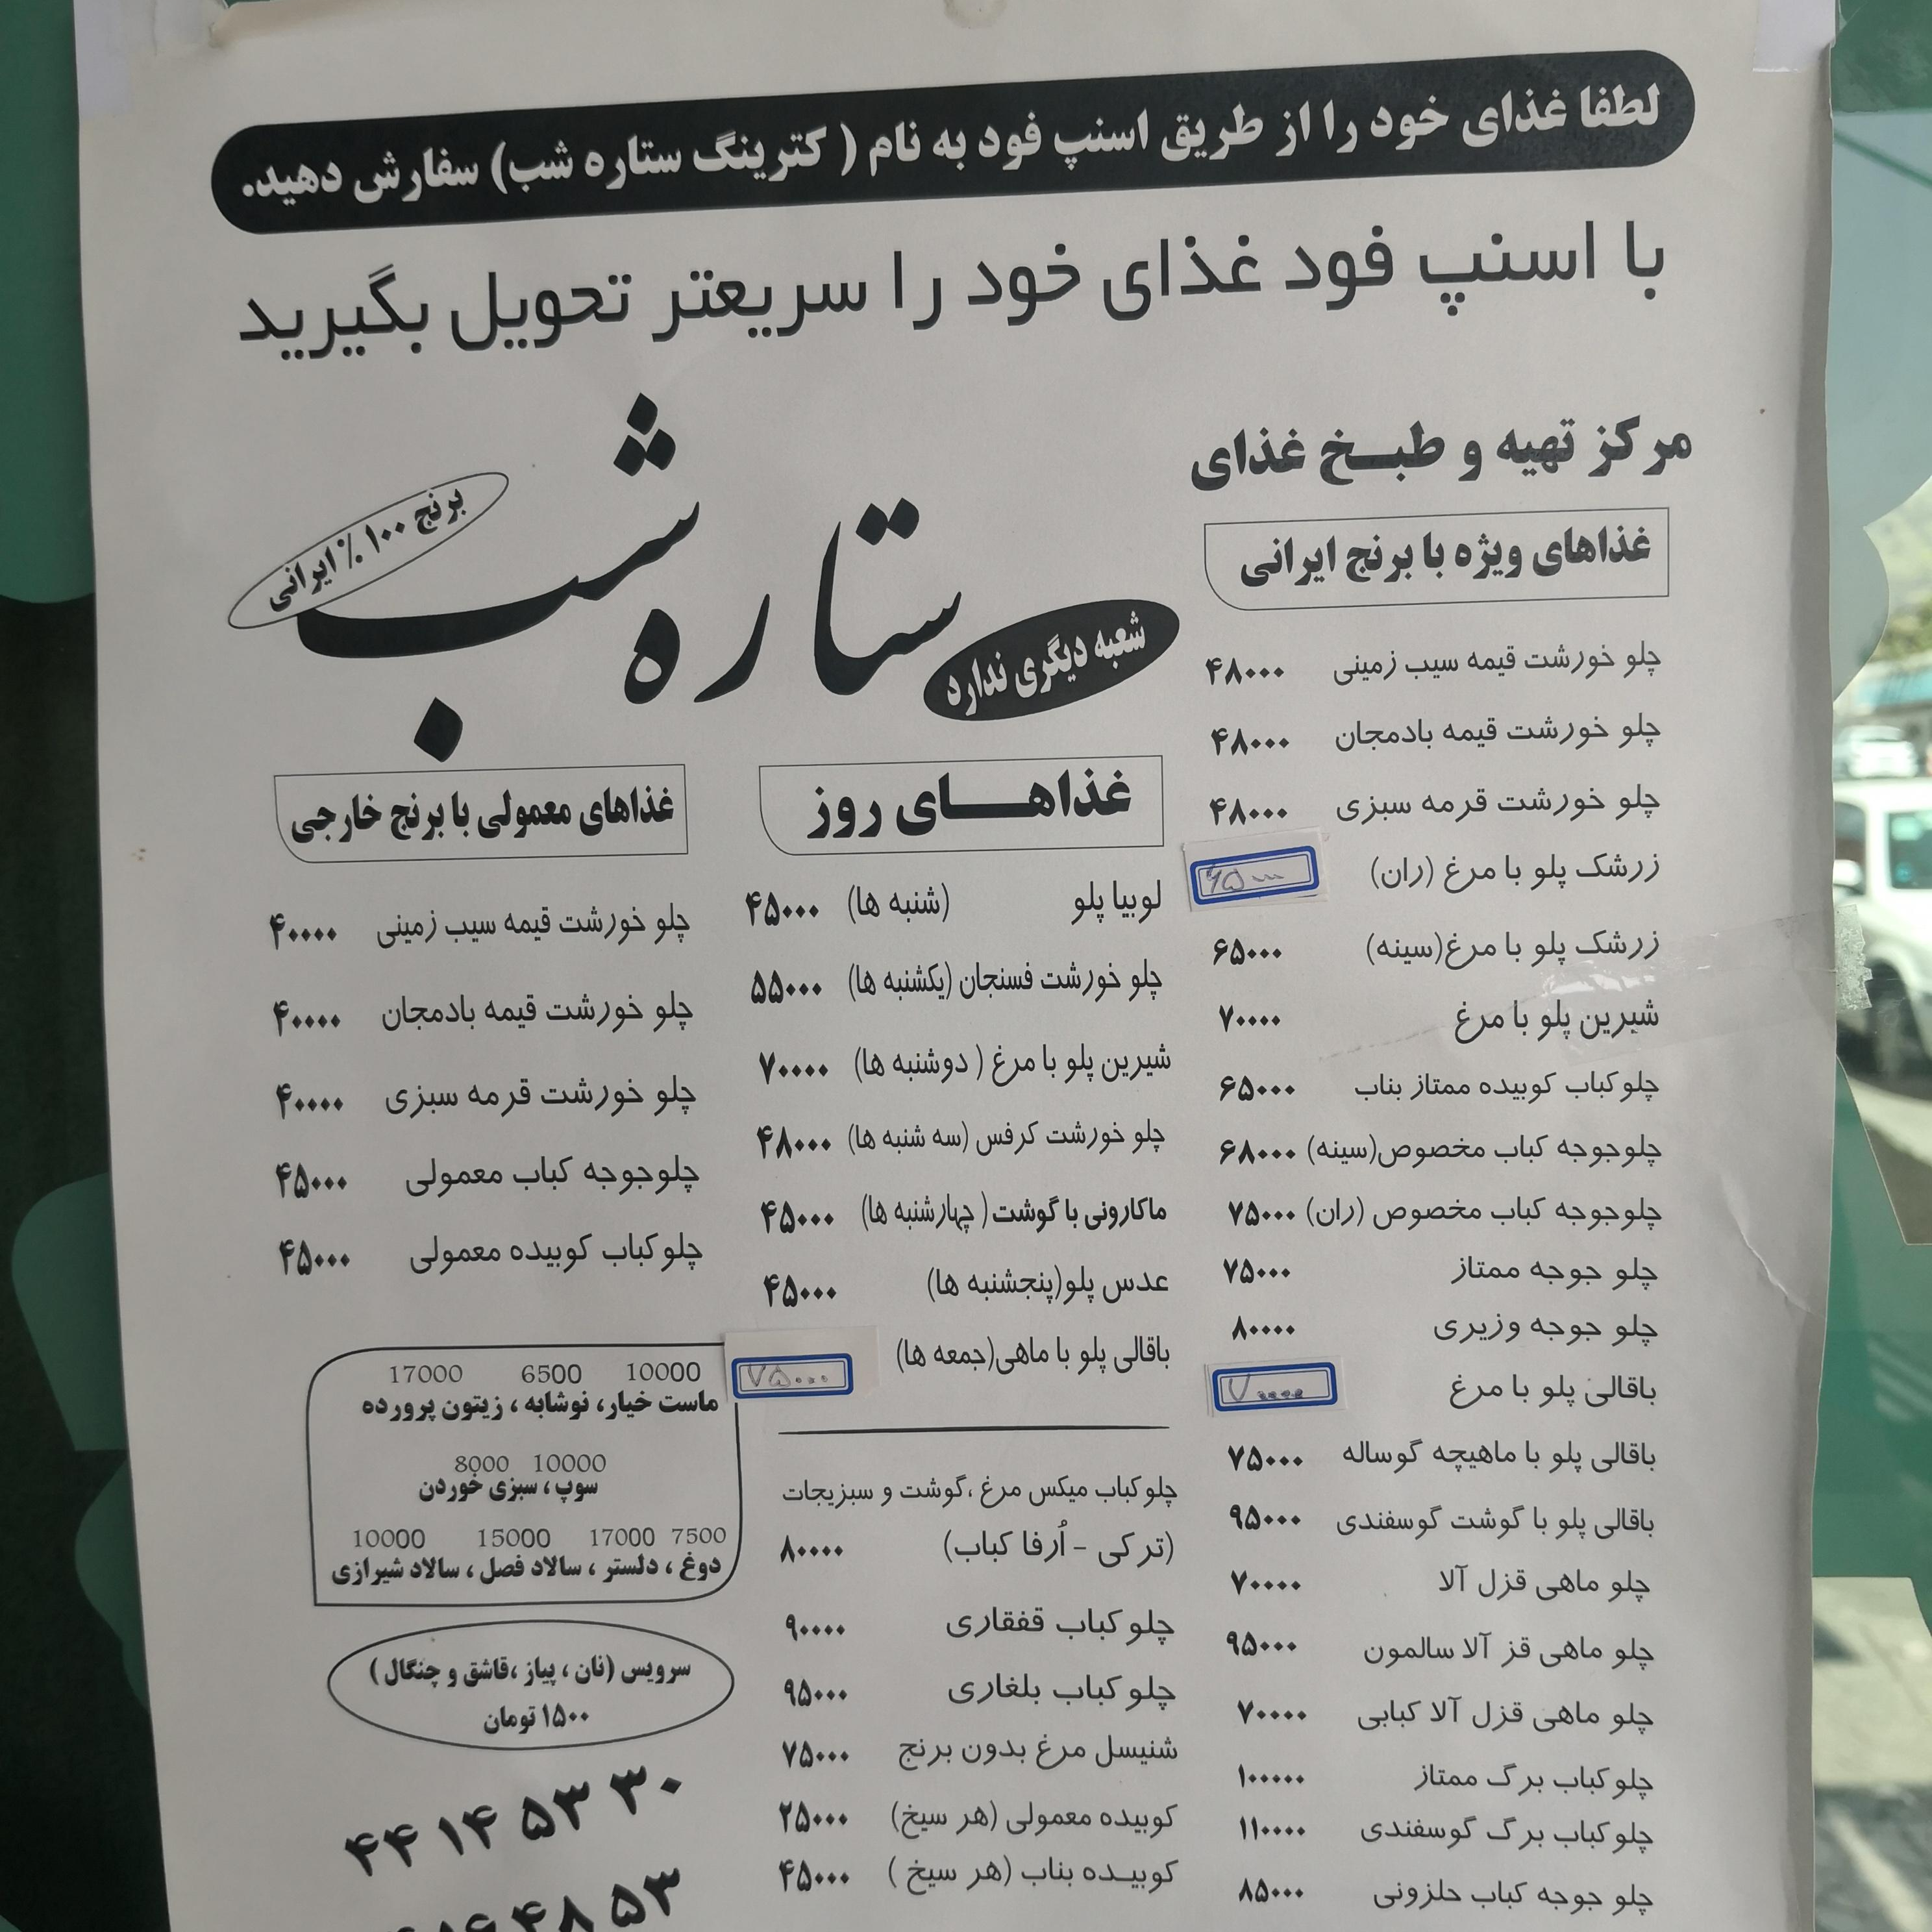 لطفا غذای خود را از طریق اسنپ فود به نام ( کترینگ ستاره شب) سفارش دهید.
با اسنپ فود غذای خود را سریعتر تحویل بگیرید
مرکز تهیه و طبخ غذای
ستاره شب
برنج ۱۰۰ ٪ ایرانی
شعبه دیگری ندارد
غذاهای ویژه با برنج ایرانی
چلو خورشت قیمه سیب زمینی ۴۸۰۰۰
چلو خورشت قیمه بادمجان ۴۸۰۰۰
چلو خورشت قرمه سبزی ۴۸۰۰۰
زرشک پلو با مرغ (ران) ۶۵۰۰۰
زرشک پلو با مرغ(سینه) ۶۵۰۰۰
شیرین پلو با مرغ ۷۰۰۰۰
چلوکباب کوبیده ممتاز بناب ۶۵۰۰۰
چلوجوجه کباب مخصوص(سینه) ۶۸۰۰۰
چلوجوجه کباب مخصوص (ران) ۷۵۰۰۰
چلو جوجه ممتاز ۷۵۰۰۰
چلو جوجه وزیری ۸۰۰۰۰
باقالی پلو با مرغ ۷۰۰۰۰
باقالی پلو با ماهیچه گوساله ۷۵۰۰۰
باقالی پلو با گوشت گوسفندی ۹۵۰۰۰
چلو ماهی قزل آلا ۷۰۰۰۰
چلو ماهی قز آلا سالمون ۹۵۰۰۰
چلو ماهی قزل آلا کبابی ۷۰۰۰۰
چلوکباب برگ ممتاز ۱۰۰۰۰۰
چلوکباب برگ گوسفندی ۱۱۰۰۰۰
چلو جوجه کباب حلزونی ۸۵۰۰۰
غذاهای روز
لوبیا پلو (شنبه ها) ۴۵۰۰۰
چلو خورشت فسنجان (یکشنبه ها) ۵۵۰۰۰
شیرین پلو با مرغ ( دوشنبه ها) ۷۰۰۰۰
چلو خورشت کرفس (سه شنبه ها) ۴۸۰۰۰
ماکارونی با گوشت ( چهارشنبه ها) ۴۵۰۰۰
عدس پلو(پنجشنبه ها) ۴۵۰۰۰
باقالی پلو با ماهی(جمعه ها) ۷۵۰۰۰
چلوکباب میکس مرغ ،گوشت و سبزیجات
(ترکی - اُرفا کباب) ۸۰۰۰۰
چلوکباب قفقاری ۹۰۰۰۰
چلوکباب بلغاری ۹۵۰۰۰
شنیسل مرغ بدون برنج ۷۵۰۰۰
کوبیده معمولی (هر سیخ) ۲۵۰۰۰
کوبیده بناب (هر سیخ ) ۴۵۰۰۰
غذاهای معمولی با برنج خارجی
چلو خورشت قیمه سیب زمینی ۴۰۰۰۰
چلو خورشت قیمه بادمجان ۴۰۰۰۰
چلو خورشت قرمه سبزی ۴۰۰۰۰
چلوجوجه کباب معمولی ۴۵۰۰۰
چلوکباب کوبیده معمولی ۴۵۰۰۰
17000 6500 10000
ماست خیار، نوشابه ، زیتون پرورده
8000 10000
سوپ ، سبزی خوردن
10000 15000 17000 7500
دوغ ، دلستر ، سالاد فصل ، سالاد شیرازی
سرویس (نان ، پیاز ،قاشق و چنگال )
۱۵۰۰ تومان
۴۴ ۱۴ ۵۳ ۳۰
۴۸ ۵۳